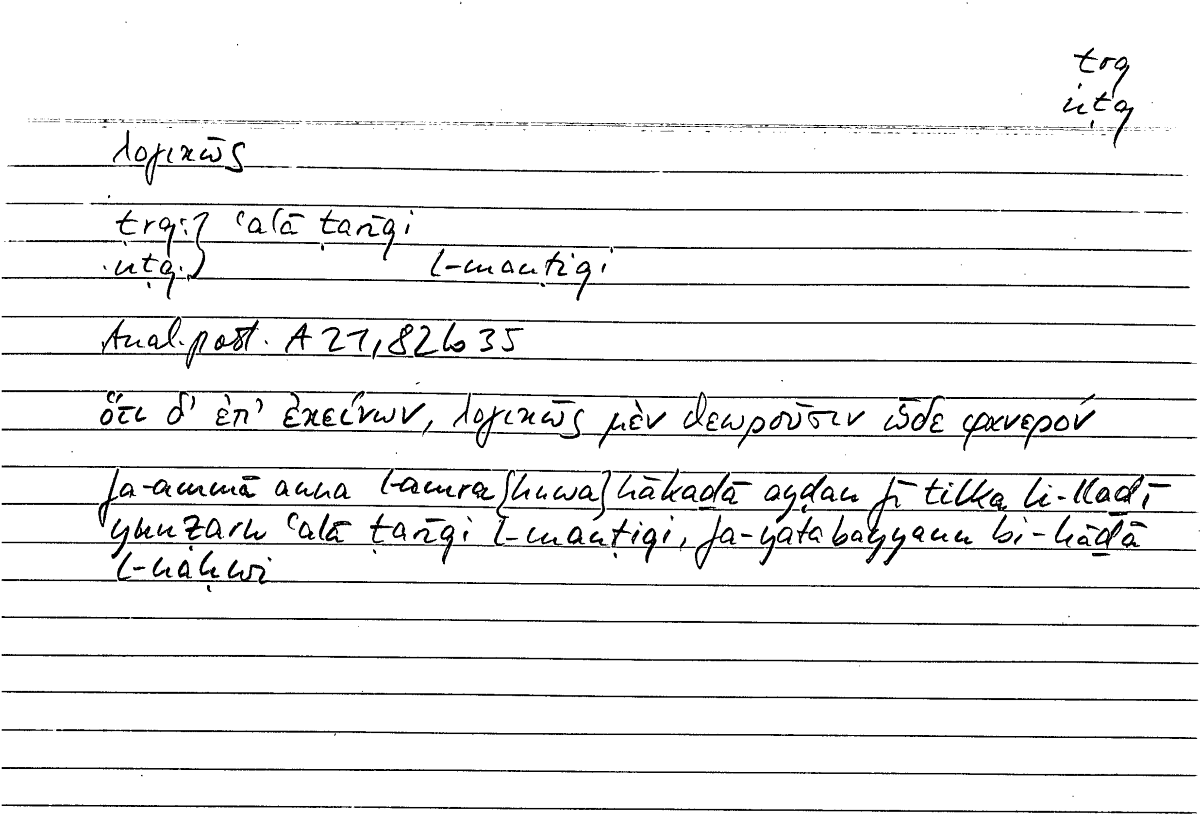 ṭrq
nṭq
λογικῶς
ṭrq:} ʿalā ṭarīqi
nṭq.} l-manṭiqi
Anal. post. A 21, 82b35
ὅτι δ' ἐπ' ἐκείνων, λογικῶς μὲν θεωροῦσιν ὧδε φανερόν
fa-ammā anna l-amra {huwa} hākaḏā ayḍan fī tilka li-llaḏī
yunẓaru ʿalā ṭarīqi l-manṭiqi, fa-yatabayyanu bi-hāḏā
l-naḥwi